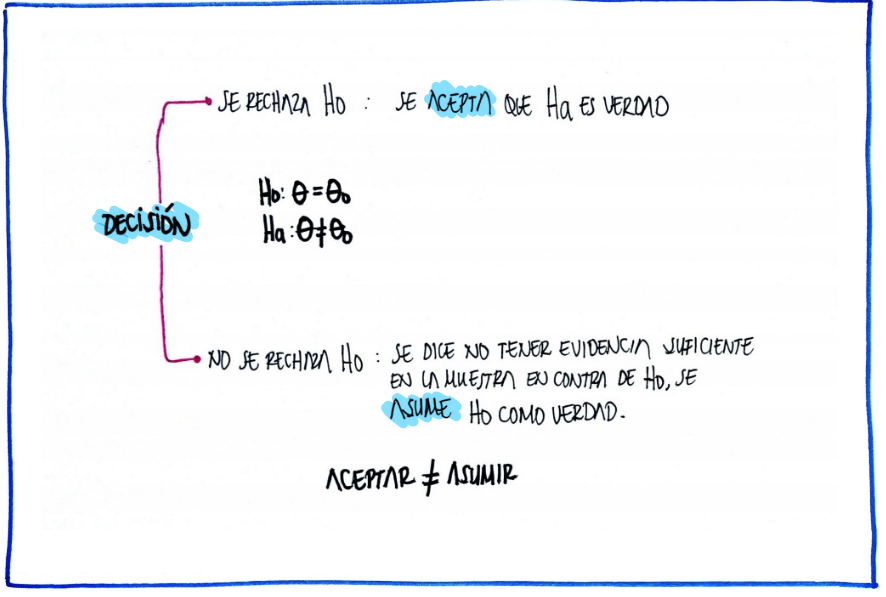 SE RECHAZA Ho : SE ACEPTA QUE Ha ES VERDAD
Ho: θ = θ₀
Ha: θ ≠ θ₀
DECISIÓN
NO SE RECHAZA Ho : SE DICE NO TENER EVIDENCIA SUFICIENTE
EN LA MUESTRA EN CONTRA DE Ho, SE
ASUME Ho COMO VERDAD.
ACEPTAR ≠ ASUMIR